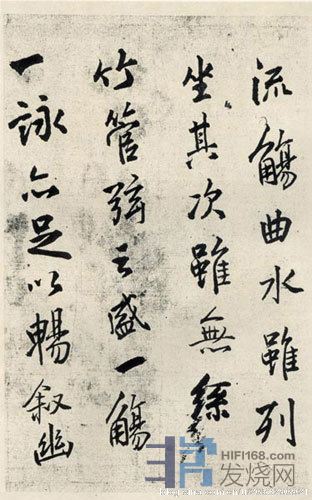 流觴曲水雖列
坐其次雖無絲
竹管弦之盛一觴
一詠亦足以暢叙幽
HIFI168.com
发烧网